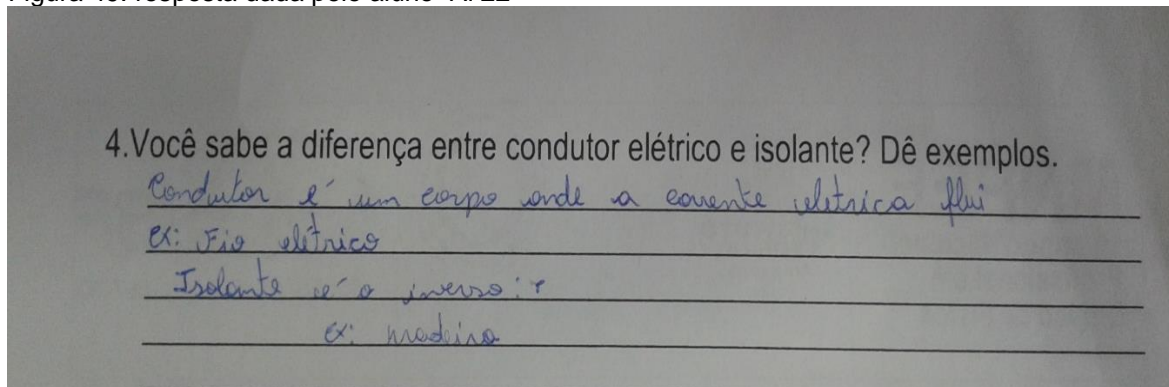 4.Você sabe a diferença entre condutor elétrico e isolante? Dê exemplos.
Condutor é um corpo onde a corrente eletrica flui
ex: Fio elétrico
Isolante é o inverso:
ex: madeira